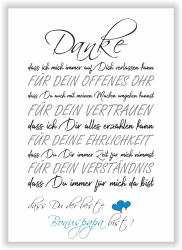 Danke
dass ich mich immer auf Dich verlassen kann
FÜR DEIN OFFENES OHR
dass Du auch mit meinen Macken umgehen kannst
FÜR DEIN VERTRAUEN
dass ich Dir alles erzählen kann
FÜR DEINE EHRLICHKEIT
dass Du Dir immer Zeit für mich nimmst
FÜR DEIN VERSTÄNDNIS
dass Du immer für mich da bist
dass Du der beste
Bonuspapa bist!